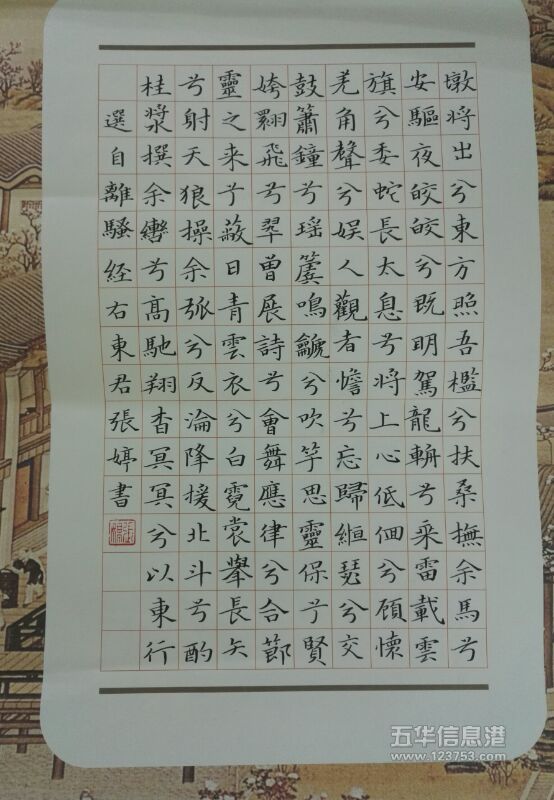 墩将出兮東方照吾檻兮扶桑撫余馬兮
安驅夜皎皎兮既明駕龍輈兮乘雷載雲
旗兮委蛇長太息兮将上心低佪兮顧懷
羌角聲兮娱人觀者憺兮忘歸絙瑟兮交
鼓簫鐘兮瑶簴鳴䶵兮吹竽思靈保兮賢
姱翾飛兮翠曾展詩兮會舞應律兮合節
靈之来兮蔽日青雲衣兮白霓裳擧長矢
兮射天狼操余弧兮反淪降援北斗兮酌
桂漿撰余轡兮高馳翔杳冥冥兮以東行
選自離騷經右東君張婷書
五华信息港
www.123753.com